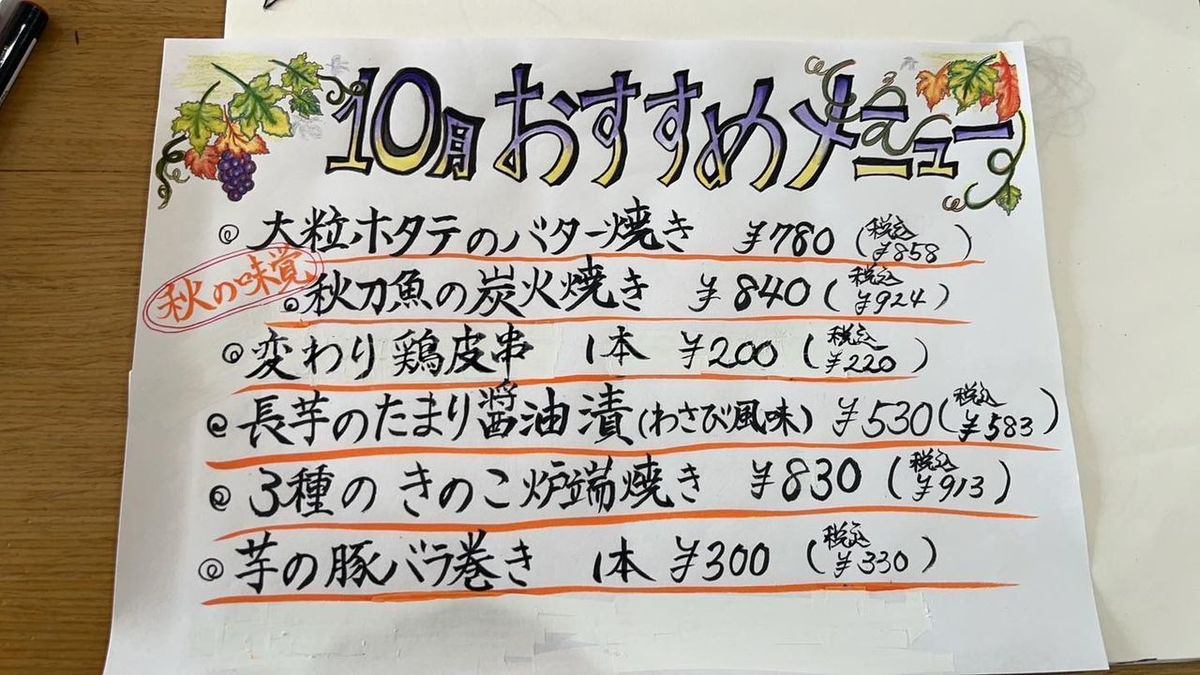 10月おすすめメニュー
大粒ホタテのバター焼き ¥780(税込¥858)
秋の味覚
秋刀魚の炭火焼き ¥840(税込¥924)
変わり鶏皮串 1本 ¥200(税込¥220)
長芋のたまり醤油漬(わさび風味) ¥530(税込¥583)
3種のきのこ炉端焼き ¥830(税込¥913)
芋の豚バラ巻き 1本 ¥300(税込¥330)